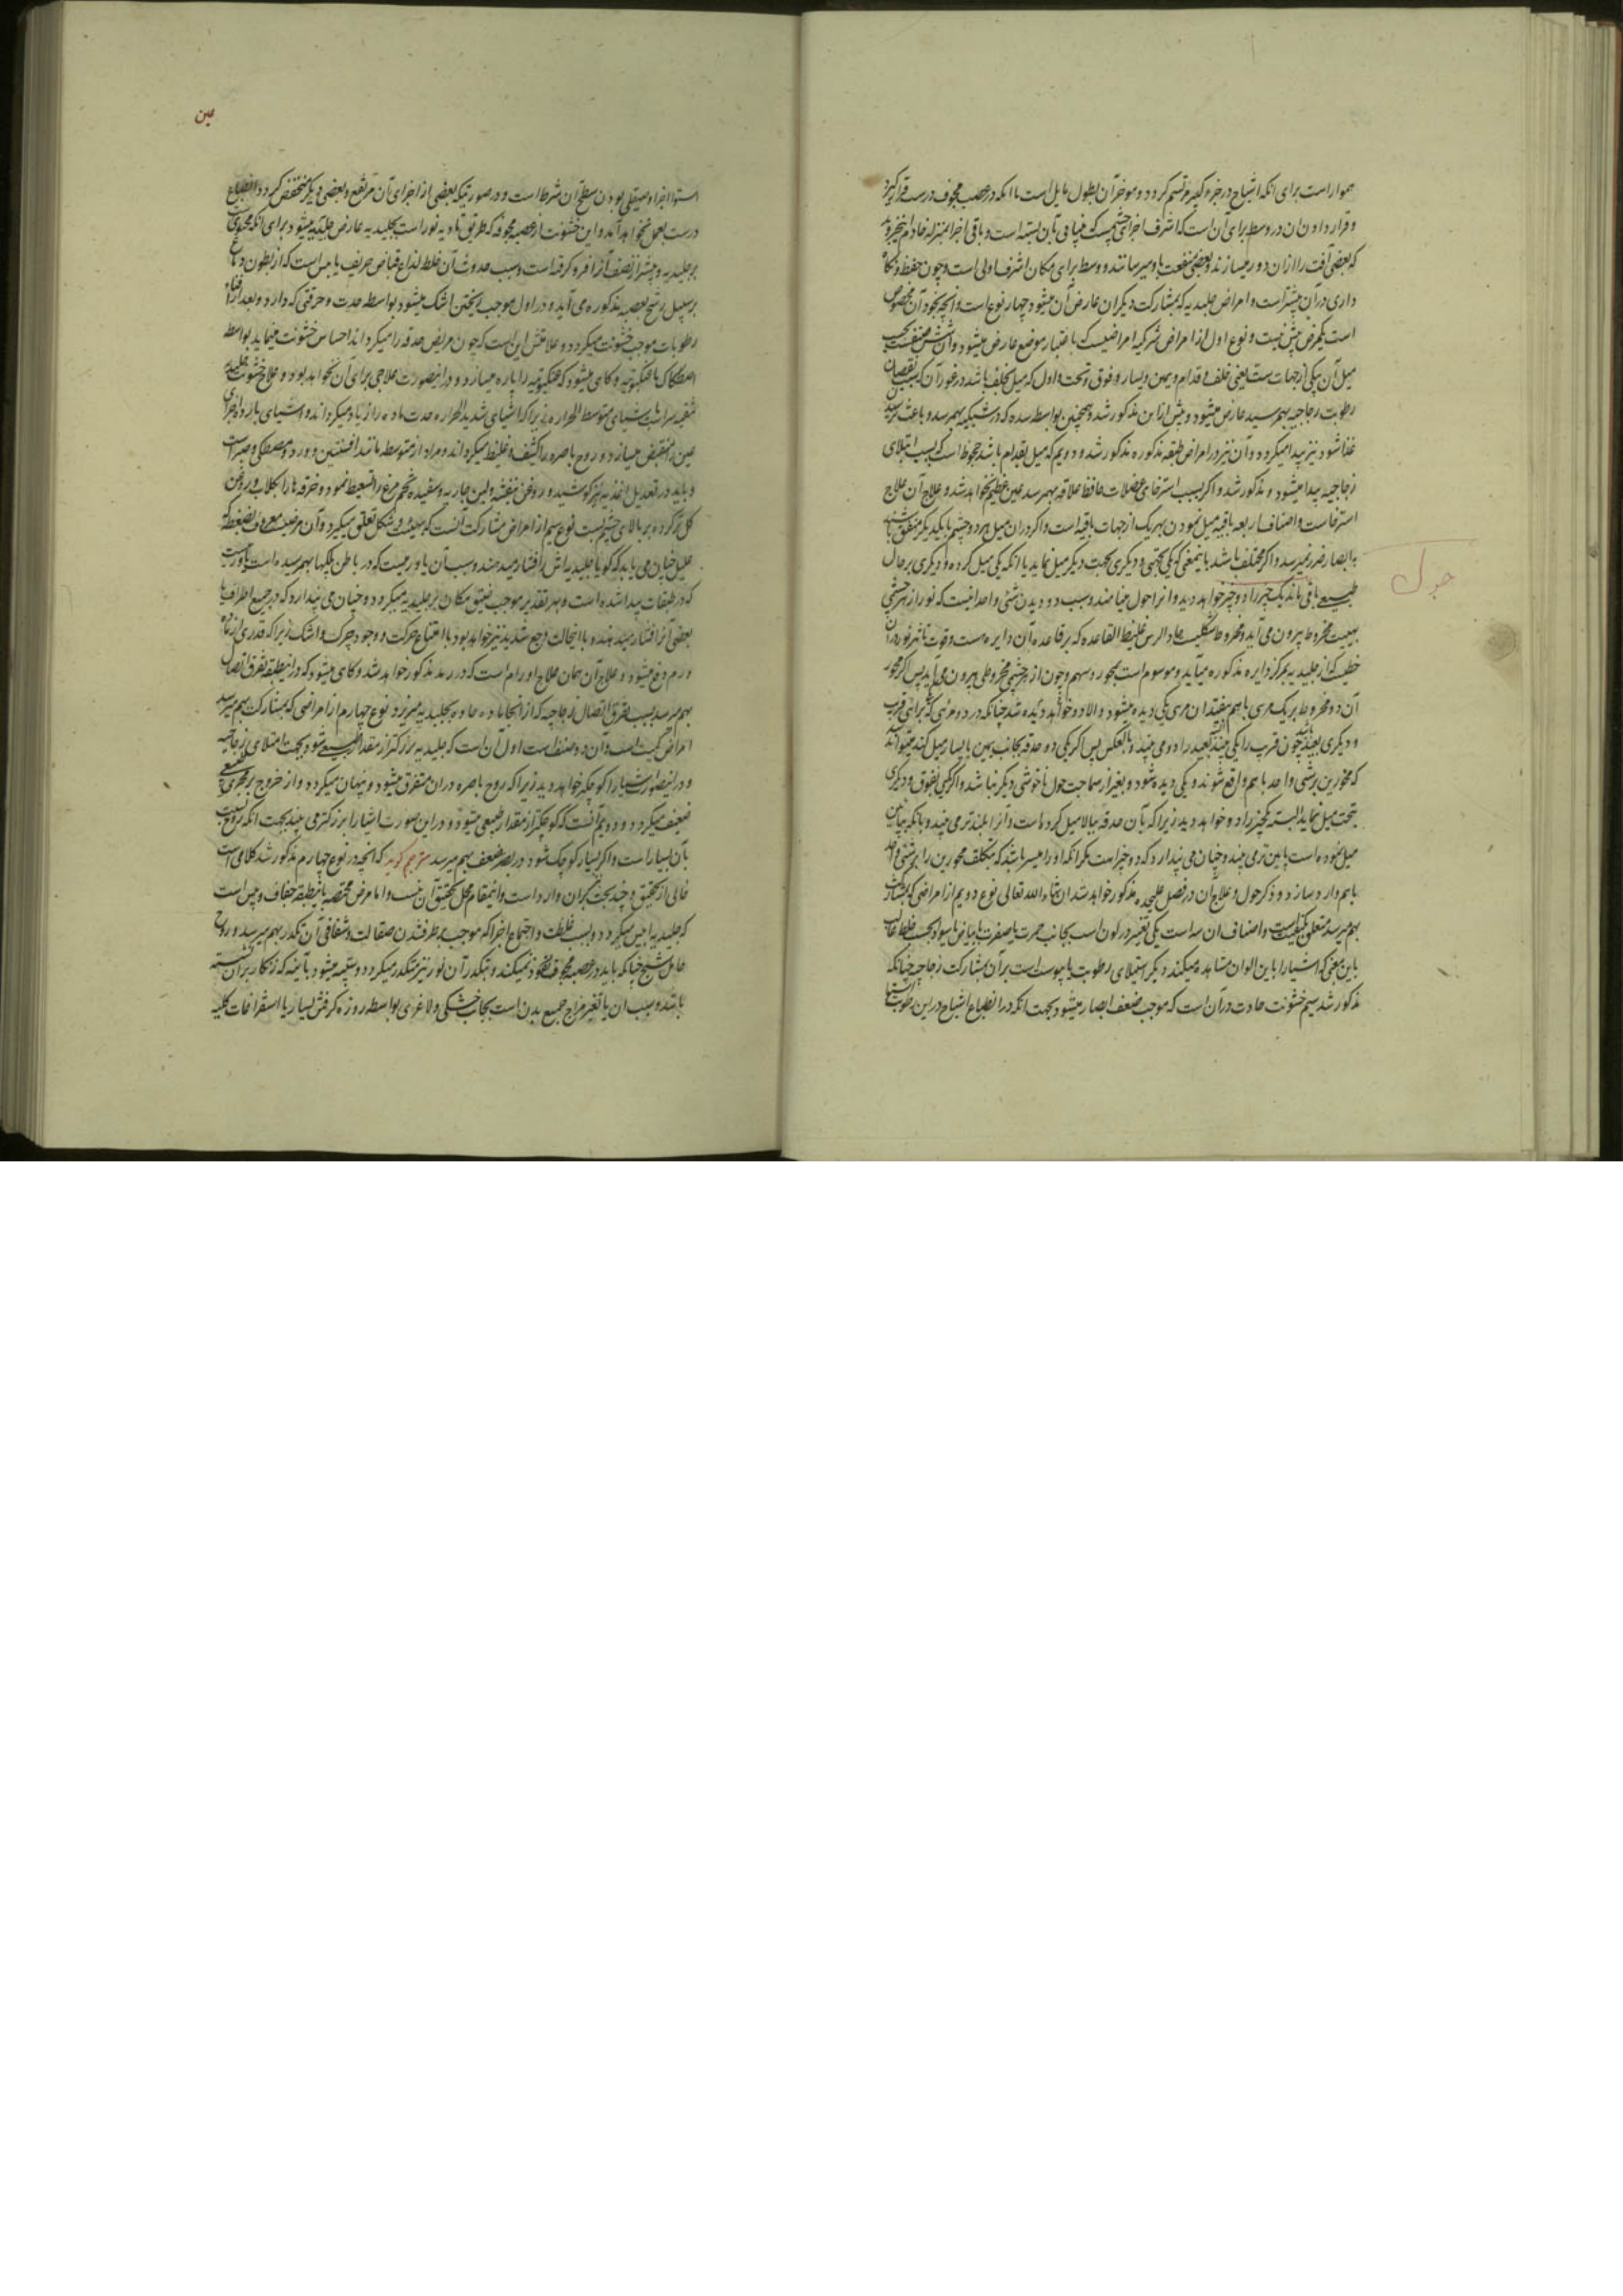 هموار است برای انکه اشباح در جزء کثیر مرتسم کردد و موخر آن بطول مایل است تا انکه در عصب مجوف درست قرار کیرد
و قرار دادن ان در وسط برای آن است که اشرف اجزای چشم است که منافی بآن بسته است و باقی اجزا بمنزله خادم انجیزوید
که بعضی آفت را ازان دور میسازند و بعضی منفعت باو میرسانند و وسط برای مکان اشرف اولی است و چون حفظ و نکاه
داری در آن بیشتر است و امراض جلیدیه که بمشارکت دیکران عارض آن میشود چهار نوع است و انچه بخود آن مخصوص
است یکمرض بیش نیست و نوع اول از امراض شرکیه امراضیست که باعتبار موضع عارض میشود و آن شش صنفست بحسب
میل آن بیکی از جهات ست یعنی خلف و قدام و یمین و یسار و فوق و تحت و اول که میل بخلف باشد در غور آن که بسبب نقصان
رطوبت زجاجیه بهمرسید عارض میشود و پیش ازین مذکور شد و همچنین بواسطه سده که در شبکیه بهمرسد و باعث نرسیدن
غذا شود نیز پیدا میکردد و آن نیز در امراض طبقه مذکوره مذکور شد و دویم که میل بقدام باشد جحوظ است که بسبب امتلای
زجاجیه پیدا میشود و مذکور شد و اکر بسبب استرخای عضلات حافظ علاقه بهمرسد عین عظیم نخواهد شد و علاج آن علاج
استرخاست و اصناف اربعه باقیه میل نمودن بهر یک از جهات باقیه است و اکر در ان میل هر دو چشم با یکدیکر متفق باشند
بابصار ضرر نمیرسد و اکر مختلف باشند باینمعنی که یکی بجهتی و دیکری بجهت دیکر میل نماید یا انکه یکی میل کرده و دیکری بر حال
طبیعی باقی ماند یک چیز را دو چیز خواهد دید و انرا حول مینامند و سبب دو دیدن شئی واحد انیست که نور از هر چشمی
بهیئت مخروط بیرون می آید و مخروط شکلیست حاد الرس غلیظ القاعده که بر قاعده آن دایره هست و قوت تاثیر نور در آن
خطیست که از جلیدیه بمرکز دایره مذکوره میآید و موسوم است بمحور و سهم و چون از هر چشمی مخروطی بیرون می آید پس اکر محور
آن دو مخروط بر یک مرئی با هم بیفتند ان مرئی یکی دیده میشود والا دو خواهد دیده شد چنانکه در دو مرئی که برائی قریب
و دیکری بعید باشد چون قریب را یکی بیند بعید را دو می بیند و بالعکس پس اکر یکی دو حدقه بجانب یمین یا یسار میل کند میتواند
که محورین بر شئی واحد با هم واقع شوند و یکی دیده شود و بغیر از سماجت حول ناخوشی دیکر نباشد و اکر یکی بفوق و دیکری
بتحت میل نماید البته یکچیز را دو خواهد دید زیرا که بآن حدقه ببالا میل کرده است و آنرا بلندتر می بیند و بانکه بپائین
میل نموده است پایین تر می بیند و چنان می پندارد که دو چیز است مکر انکه او را میسر باشد که بتکلف محورین را بر شئی واحد
باهم دارد سازد و ذکر حول و علاج آن در فصل علیحده مذکور خواهد شد ان شاء الله تعالی نوع دویم از امراضی که بمشارکت
بهم میرسد متعلق بکیفیت است و اصناف ان سه است یکی تغیر در لون است بجانب حمرت یا صفرت یا بیاض یا سواد بحسب خلط غالب
باین معنی که اشیا را باین الوان مشاهده میکند دیکر استیلای رطوبت یا یبوست است بر آن بمشارکت زجاجیه چنانکه
مذکور شد سیم خشونت حادث در آن است که موجب ضعف ابصار میشود بجهت انکه در انطباع اشباح در این رطوبت
حول
عین
استوا اجزا و صیقلی بودن سطح آن شرط است و در صورتیکه بعضی از اجزای آن مرتفع و بعضی دیکر منخفض کردد انطباع
درست بعمل نخواهد آمد و این خشونت از عصبه مجوفه که طریق تادیه نور است بجلیدیه عارض جلیدیه میشود برای انکه محتویست
بر جلیدیه و بیشتر از نصف آنرا فرو کرفته است و سبب حدوث آن خلط لذاع قباض حریف یابس است که از بطون دماغ
بر سبیل رشح بعصبه مذکوره می آید و در اول موجب ریختن اشک میشود بواسطه حدت و حرقتی که دارد و بعد از افناء
رطوبات موجب خشونت میکردد و علامتش این است که چون مریض حدقه را میکرداند احساس خشونت مینماید بواسطه
اصطکاک با عنکبوتیه و کاهی میشود که عنکبوتیه را پاره میسازد و در اینصورت علاجی برای آن نخواهد بود و علاج خشونت جلیدیه
تنقیه سر است باشیای متوسط الحراره زیرا که اشیای شدید الحراره حدت ماده را زیاد میکرداند و اشیای بارد اجزای
عین را منقبض میسازد و روح باصره را کثیف و غلیظ میکرداند و مراد از متوسطه مانند افسنتین و ورد و مصطکی و صبر است
و باید در تعدیل اغذیه نیز کوشند و روغن بنفشه و لبن جاریه و سفیده تخم مرغ را تسعیط نمود و خرقه ها را بکلاب و روغن
کل تر کرده بر بالای چشم بست نوع سیم از امراض مشارکت انست که بهیئت و شکل تعلق میکیرد و آن مرضیست معروف بضغطه که
علیل چنان می یابد که کویا جلیدیه اش را فشار میدهند و سبب آن یا ورمیست که در باطن پلکها بهمرسیده است یا ورمیست
که در طبقات پیدا شده است و بهر تقدیر موجب ضیق مکان بر جلیدیه میکردد و چنان می پندارد که در جمیع اطراف یا
بعضی آنرا فشار میدهند و با اینحالت وجع شدید نیز خواهد بود با امتناع حرکت و وجود چرک و اشک زیرا که قدری از ماده
ورم دفع میشود و علاج آن همان علاج اورام است که در رمد مذکور خواهد شد و کاهی میشود که در اینطبقه تفرق اتصال
بهم میرسد بسبب تفرق اتصال زجاجیه که از انجا ماده حاده بجلیدیه میریزد و نوع چهارم از امراضی که بمشارکت بهم میرسد
امراض کمیت است و آن دو صنف است اول آن است که جلیدیه بزرکتر از مقدار طبیعی شود بجهت امتلای زجاجیه
و در اینصورت اشیا را کوچکتر خواهد دید زیرا که روح باصره در ان متفرق میشود و پنهان میکردد و از خروج بر مجری طبیعی
ضعیف میکردد و دویم آنست که کوچکتر از مقدار طبیعی میشود و در این صورت اشیا را بزرکتر می بیند بجهت انکه روح نسبت
بآن بسیار است و اکر بسیار کوچک شود در بصر ضعف بهم میرسد مترجم کوید که انچه در نوع چهارم مذکور شد کلامی است
خالی از تحقیق و چند بحث بر ان وارد است و اینمقام محل تحقیق آن نیست و اما مرض مختصه باینطبقه جفاف و یبس است
که جلیدیه یابس میکردد و بسبب غلظت و اجتماع اجزا که موجب بر طرف شدن صقالت و شفافی آن تکدر بهم میرسد و روح
حامل شبح چنانکه باید در عصبه مجوفه نفوذ نمیکند و بتکدر آن نور نیز متکدر میکردد و شبیه میشود بآئینه که زنکار بر آن نشسته
باشد و سبب ان یا تغیر مزاج جمیع بدن است بجانب خشکی و لاغری بواسطه روزه کرفتن بسیار یا استفراغات کلیه